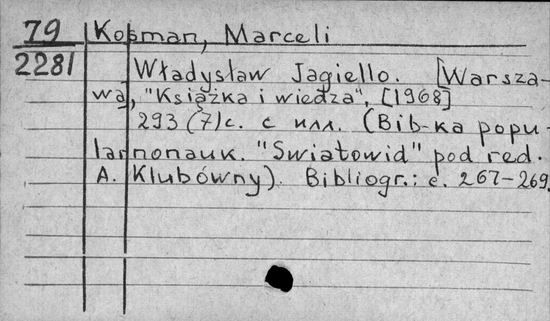 79 Kosman, Marceli
2281 Władysław Jagiello. [Warsza-
wa], "Książka i wiedza", [1968]
293 (7) с. с илл. (Bib-ka popu-
larnonauk. "Swiatowid" pod red.
A. Klubówny). Bibliogr.: с. 267-269.